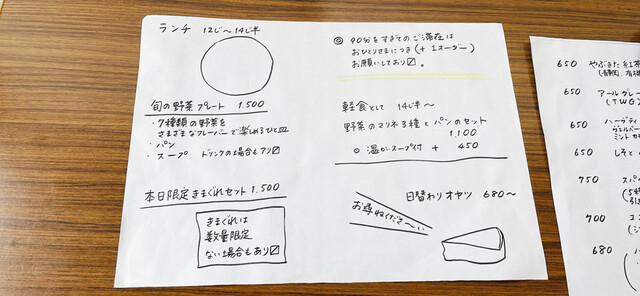 ランチ 12じ〜14じ半
旬の野菜プレート 1.500
・7種類の野菜を
さまざまなフレーバーで楽しめるひと皿
・パン
・スープ ドリンクの場合もあり〼
本日限定きまぐれセット 1.500
きまぐれは
数量限定
ない場合もあり〼
◎ 90分をすぎてのご滞在は
おひとりさまにつき(+1オーダー)
お願いしており〼。
軽食として 14じ半〜
野菜のマリネ3種とパンのセット
1,100
○ 温かいスープ付 + 450
日替わりオヤツ 680〜
お尋ねくださ〜い
650 やぶきた紅茶
(静岡.有機
650 アールグレー
(TWG)
650 ハーブティ
ミント
650 しそと
750 スパ
700 コ
680